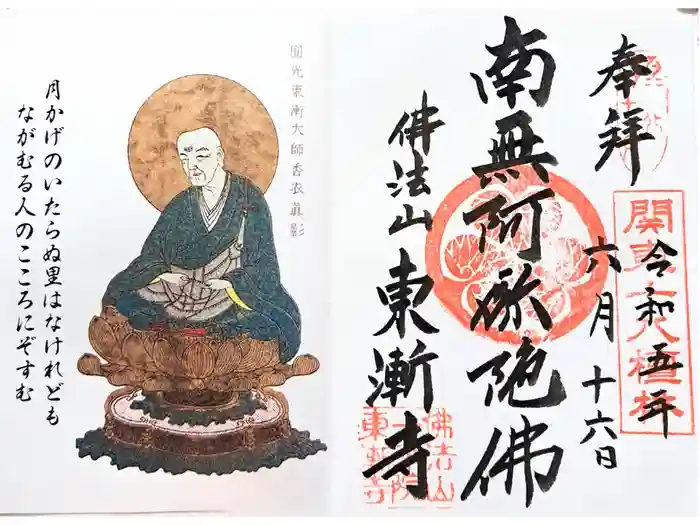 奉拝
令和五年
六月十六日
南無阿弥陀佛
佛法山東漸寺
圓光東漸大師香衣真影
月かげのいたらぬ里はなけれども
ながむる人のこころにぞすむ